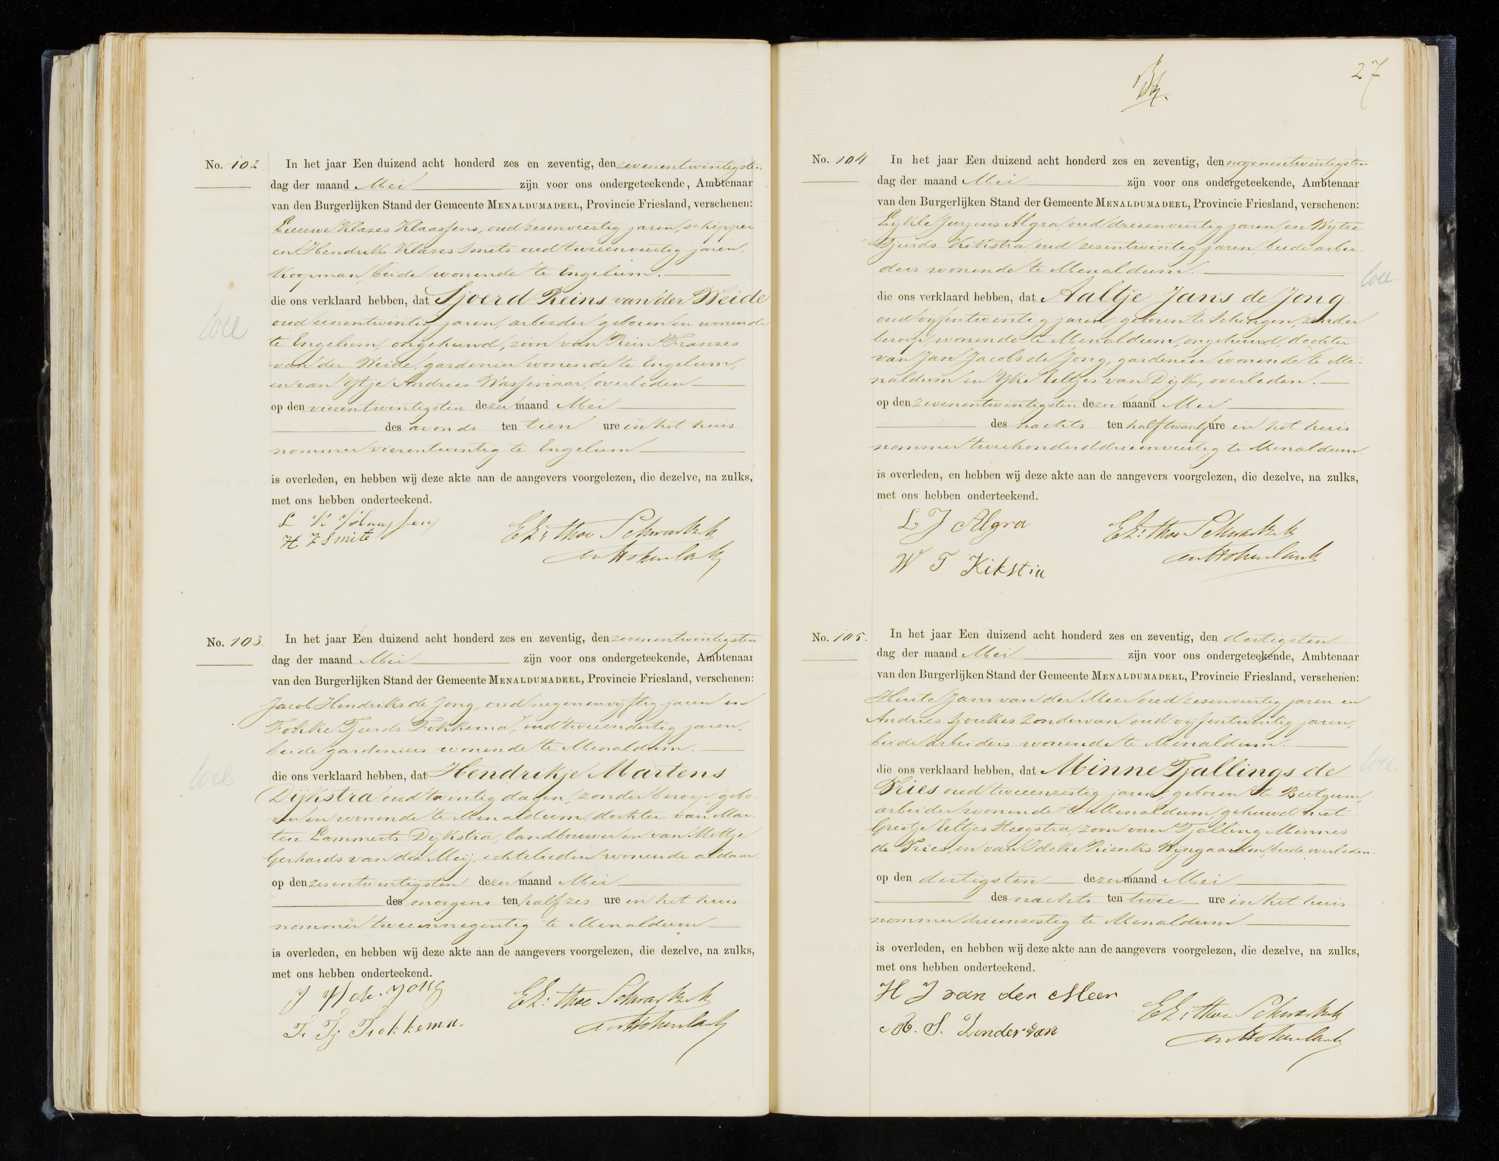 No. 102
In het jaar Een duizend acht honderd zes en zeventig, den zevenentwintigsten
dag der maand Mei zijn voor ons ondergeteekende, Ambtenaar
van den Burgerlijken Stand der Gemeente MENALDUMADEEL, Provincie Friesland, verschenen:
Lieuwe Klases Klaassens, oud zesenveertig jaren, schipper
en Hendrik Klases Smits oud tweeenveertig jaren,
koopman, beide wonende te Engelum.
die ons verklaard hebben, dat Sjoerd Reins van der Weide
oud jaren, arbeider, geboren en wonende
te Engelum, ongehuwd, zoon van Rein Franses
van der Weide, gardenier wonende te Engelum,
en van Ytje Andries Wassenaar, overleden
op den vierentwintigsten dezer maand Mei
des avonds ten tien ure in het huis
nommer vierentwintig te Engelum
is overleden, en hebben wij deze akte aan de aangevers voorgelezen, die dezelve, na zulks,
met ons hebben onderteekend.
L K Klaassens
H K Smits
thoe Schwartzenberg
en Hohenlansberg
No. 103
In het jaar Een duizend acht honderd zes en zeventig, den zevenentwintigsten
dag der maand Mei zijn voor ons ondergeteekende, Ambtenaar
van den Burgerlijken Stand der Gemeente MENALDUMADEEL, Provincie Friesland, verschenen:
Jacob Hendriks de Jong, oud negenenvijftig jaren en
Fokke Tjeerds Fokkema, oud tweeendertig jaren,
beide gardeniers wonende te Menaldum.
die ons verklaard hebben, dat Hendrikje Martens
Dijkstra oud twintig dagen, zonder beroep, gebo-
ren en wonende te Menaldum, dochter van Mar-
ten Lammerts Dijkstra, landbouwer en van Mettje
Gerhards van der Meij, echtelieden wonende aldaar
op den zesentwintigsten dezer maand Mei
des morgens ten half zes ure in het huis
nommer tweeennegentig te Menaldum
is overleden, en hebben wij deze akte aan de aangevers voorgelezen, die dezelve, na zulks,
met ons hebben onderteekend.
J H de Jong
F. Tj Fokkema.
thoe Schwartzenberg
en Hohenlansberg
27
No. 104
In het jaar Een duizend acht honderd zes en zeventig, den negenentwintigsten
dag der maand Mei zijn voor ons ondergeteekende, Ambtenaar
van den Burgerlijken Stand der Gemeente MENALDUMADEEL, Provincie Friesland, verschenen:
Lykle Jurjens Algra oud drieenveertig jaren, en Wytse
Tjeerds Kikstra oud zesentwintig jaren, beide arbei-
ders wonende te Menaldum.
die ons verklaard hebben, dat Aaltje Jans de Jong
oud vijfentwintig jaren, geboren te Schingen, zonder
beroep, wonende te Menaldum, ongehuwd, dochter
van Jan Jacobs de Jong, gardenier wonende te Me-
naldum en Eeltjes van Dijk, overleden.
op den zevenentwintigsten dezer maand Mei
des nachts ten half twaalf ure in het huis
nommer tweehonderddrieenveertig te Menaldum
is overleden, en hebben wij deze akte aan de aangevers voorgelezen, die dezelve, na zulks,
met ons hebben onderteekend.
L J Algra
W T Kikstra
thoe Schwartzenberg
en Hohenlansberg
No. 105.
In het jaar Een duizend acht honderd zes en zeventig, den dertigsten
dag der maand Mei zijn voor ons ondergeteekende, Ambtenaar
van den Burgerlijken Stand der Gemeente MENALDUMADEEL, Provincie Friesland, verschenen:
Jans van der Meer oud zesenveertig jaren en
Andries Sjoukes Zondervan oud vijfentwintig jaren,
beide arbeiders wonende te Menaldum.
die ons verklaard hebben, dat Minne Tjallings de
Vries oud tweeenzestig jaren, geboren te Beetgum,
arbeider wonende te Menaldum, gehuwd met
Grietje Eeltjes Hoogstra, zoon van Tjalling Minnes
de Vries, en van Rienks Wijngaarden, beide overleden.
op den dertigsten dezer maand Mei
des nachts ten twee ure in het huis
nommer drieenzestig te Menaldum
is overleden, en hebben wij deze akte aan de aangevers voorgelezen, die dezelve, na zulks,
met ons hebben onderteekend.
H J van der Meer
A. S. Zondervan
thoe Schwartzenberg
en Hohenlansberg